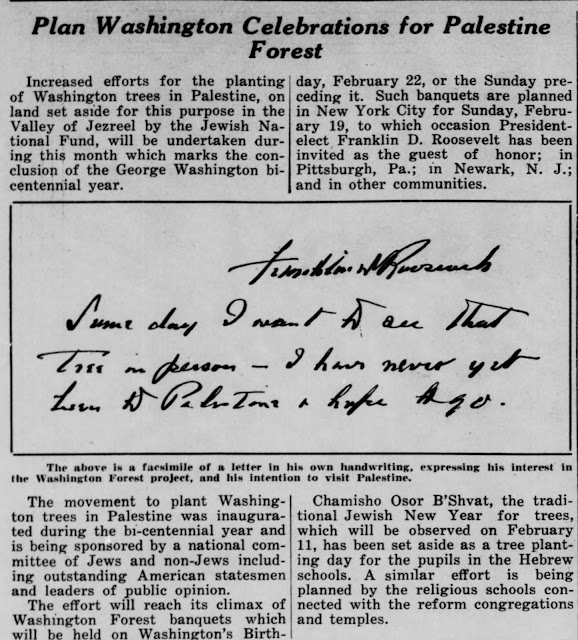 Plan Washington Celebrations for Palestine
Forest
Increased efforts for the planting
of Washington trees in Palestine, on
land set aside for this purpose in the
Valley of Jezreel by the Jewish Na-
tional Fund, will be undertaken dur-
ing this month which marks the con-
clusion of the George Washington bi-
centennial year.
day, February 22, or the Sunday pre-
ceding it. Such banquets are planned
in New York City for Sunday, Febru-
ary 19, to which occasion President-
elect Franklin D. Roosevelt has been
invited as the guest of honor; in
Pittsburgh, Pa.; in Newark, N. J.;
and in other communities.
Franklin D Roosevelt
Some day I want to see that
Tree in person - I have never yet
been to Palestine & hope to go.
The above is a facsimile of a letter in his own handwriting, expressing his interest in
the Washington Forest project, and his intention to visit Palestine.
The movement to plant Washing-
ton trees in Palestine was inaugura-
ted during the bi-centennial year and
is being sponsored by a national com-
mittee of Jews and non-Jews includ-
ing outstanding American statesmen
and leaders of public opinion.
The effort will reach its climax of
Washington Forest banquets which
will be held on Washington's Birth-
Chamisho Osor B'Shvat, the tradi-
tional Jewish New Year for trees,
which will be observed on February
11, has been set aside as a tree plant-
ing day for the pupils in the Hebrew
schools. A similar effort is being
planned by the religious schools con-
nected with the reform congregations
and temples.